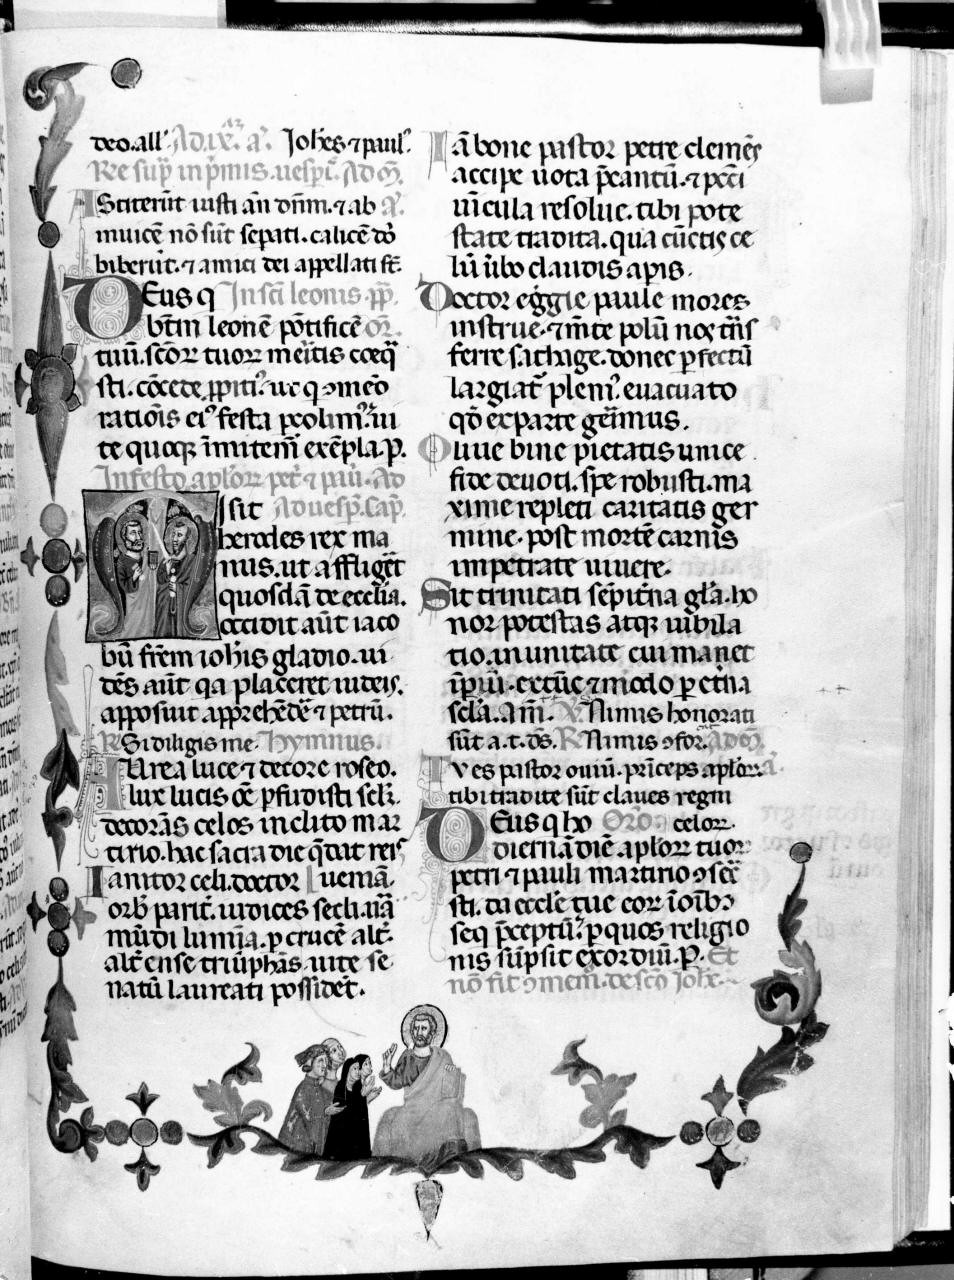 deo. all'. Ad. ix. a. Joh̄es ⁊ paul⁹.
Re sup̄ in p̄mis. uesp̄i. Ad M̄.
Asciterūt iusti an̄ dn̄m. ⁊ ab a.
inuicē nō sūt sep̄ati. calicē do
biberūt. ⁊ amici dei appellati st̄.
Deus q In sc̄i leonis. pp.
bt̄m leonē pōtificē or̄.
tuū. sc̄oꝝ tuoꝝ mēitis coeq̄
sti. cōcede ꝓpiti⁹. ut q ꝯmēo
rationis ei⁹ festa ꝑcolim⁹. ui
te quoqꝫ īmitem̄ exēpla. P.
In festo aplōꝝ pet̄ ⁊ pau̅. Ad
Misit Ad uesp̄. Cap̄.
herodes rex ma
nus. ut affligēt
quosdā de eccl̄ia.
occidit aūt iaco
bū fr̄em ioh̄is gladio. ui
dēs aūt qa placeret iudeis.
apposuit app̄rehēdē ⁊ petrū.
R Si diligis me. Hymnus.
Aurea luce ⁊ decore roseo.
lux lucis oē ꝑfudisti sclm̄.
decorās celos inclito mar
tirio. hac sacra die q̄ dat reis
Ianitor celi. doctor
orb̄ parit̄. iudices secli. uā
mūdi lumīa. ꝑ crucē alt̄.
alt̄ ense triūphās. uite se
natū laureati possidēt.
Iā bone pastor petre clemēs
accipe uota p̄cantū. ⁊ pcc̄i
uīcula resolue. tibi pote
state tradita. qua cūctis ce
lū ūbo claudis apis.
Doctor eg̅gie paule mores
instrue. ⁊ m̄te polū nos tn̄s
ferre satage. donec ꝑfectū
largiat̄ plenī⁹ euacuato
qd̄ ex parte gerimus.
Oliue bine pietatis unice
fide deuoti. spe robusti. ma
xime repleti caritatis ger
mine. post mortē carnis
impetrate uiuere.
Sit trinitati sēpit̄na gl̄a. ho
nor potestas atqꝫ iubila
tio. in unitate cui manet
īꝑiū. ex tūc ⁊ modo ꝑ et̄na
scl̄a. Am̄. V̄. Nimis honorati
sūt a. t. d̄s. R Nimis ꝯfor̄. Ad M̄.
Tu es pastor ouiū. prīceps aplōꝝ. a.
tibi tradite sūt claues regni
Deus q ho Or̄o. celoꝝ.
diernā diē aplōꝝ tuoꝝ
petri ⁊ pauli martirio ꝯsec̄
sti. da eccle tue eoꝝ ī oībꝫ
seq̄ p̄ceptū. ꝑ quos religio
nis sūpsit exordiū. P. Et
nō fit ꝯmem̄. de sc̄o Joh̄e.